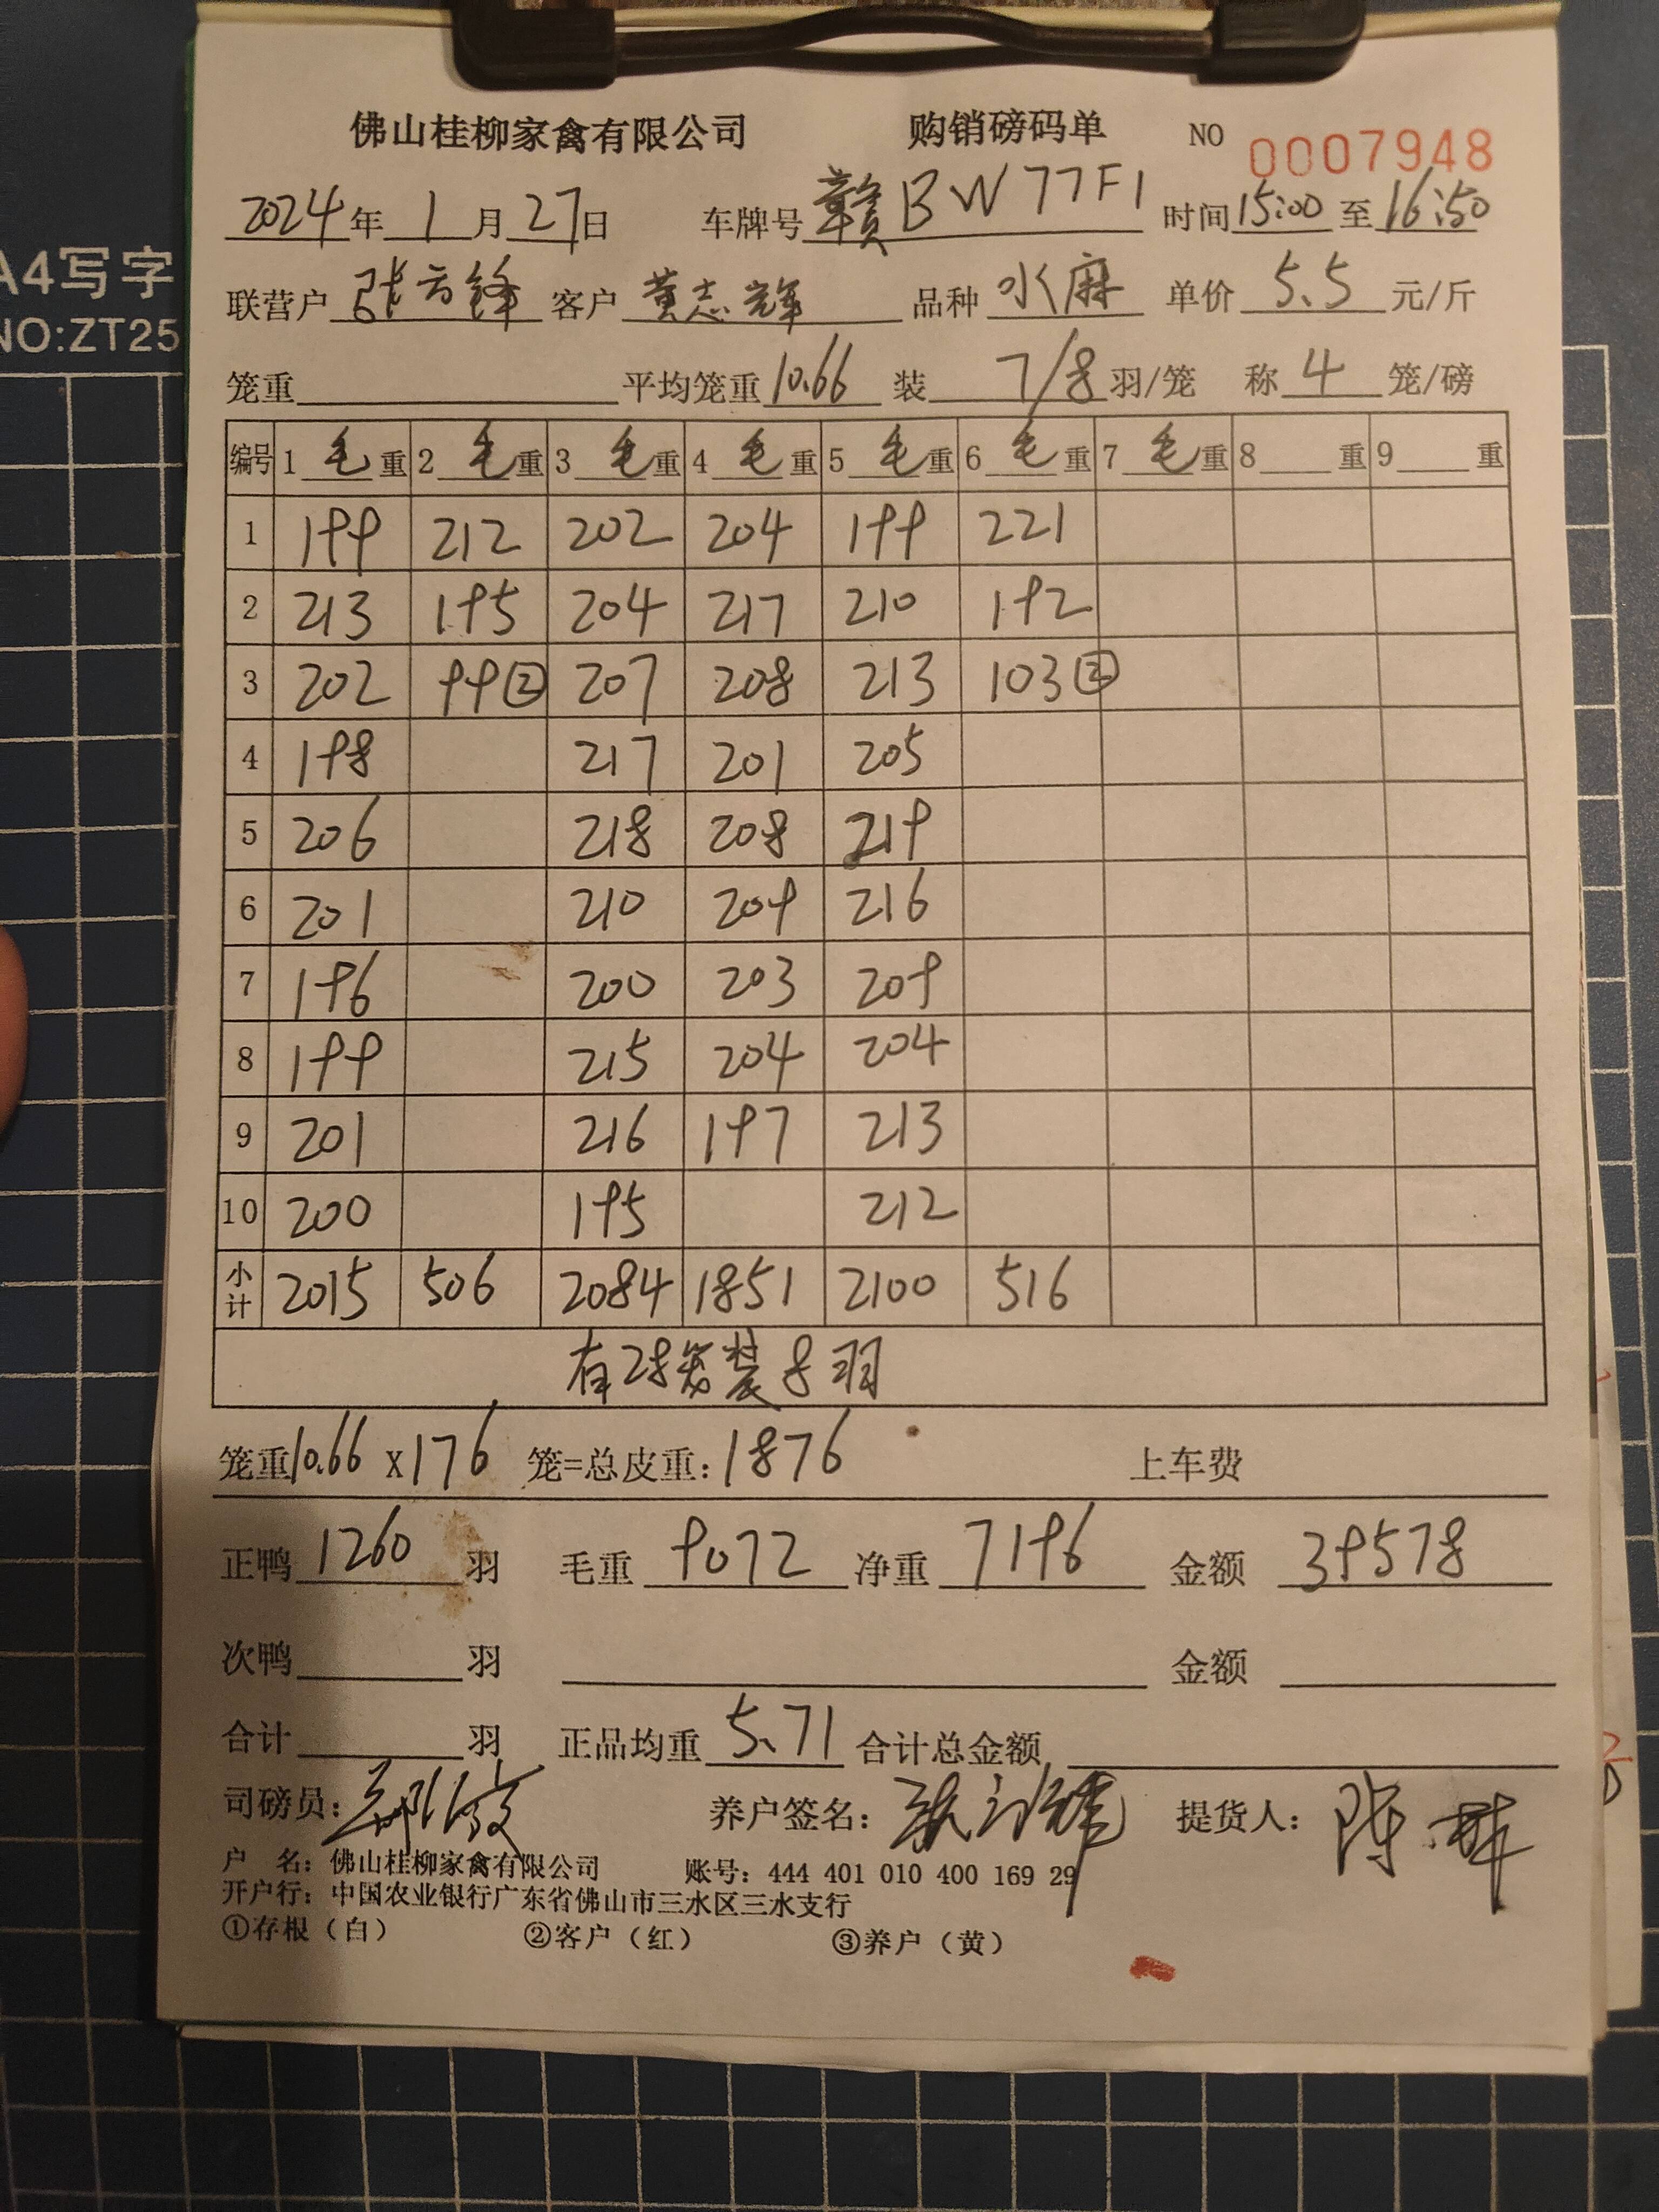 A4写字
NO:ZT25
佛山桂柳家禽有限公司 购销磅码单 NO 0007948
2024年1月27日 车牌号赣BW77F1 时间15:00至16:50
联营户 客户黄志辉 品种水麻 单价5.5元/斤
笼重 平均笼重10.66 装7/8羽/笼 称4笼/磅
编号 1毛重 2毛重 3毛重 4毛重 5毛重 6毛重 7毛重 8重 9重
1 199 212 202 204 199 221
2 213 195 204 217 210 192
3 202 99② 207 208 213 103②
4 198 217 201 205
5 206 218 208 219
6 201 210 209 216
7 196 200 203 209
8 199 215 204 204
9 201 216 197 213
10 200 195 212
小计 2015 506 2084 1851 2100 516
有28笼装8羽
笼重10.66X176笼=总皮重:1876 上车费
正鸭1260羽 毛重9072 净重7196 金额39578
次鸭 羽 金额
合计 羽 正品均重5.71 合计总金额
司磅员: 养户签名: 提货人:
户 名:佛山桂柳家禽有限公司 账号:444 401 010 400 169 29
开户行:中国农业银行广东省佛山市三水区三水支行
①存根(白) ②客户(红) ③养户(黄)